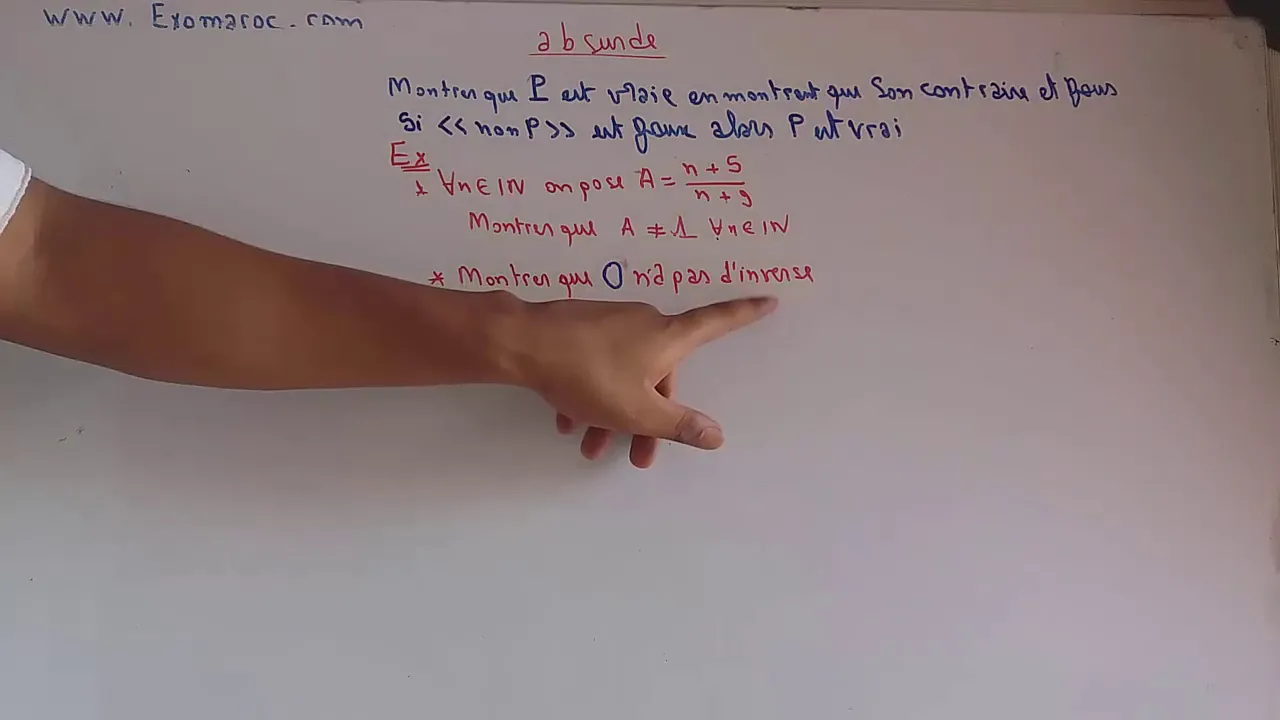 www. Exomaroc.com
absurde
Montrer que P est vraie en montrant que son contraire et faus
Si << non P >> est fausse alors P est vrai
Ex
* ∀n∈IN on pose A = (n+5)/(n+9)
Montrer que A ≠ 1 ∀n∈IN
* Montrer que 0 n'a pas d'inverse